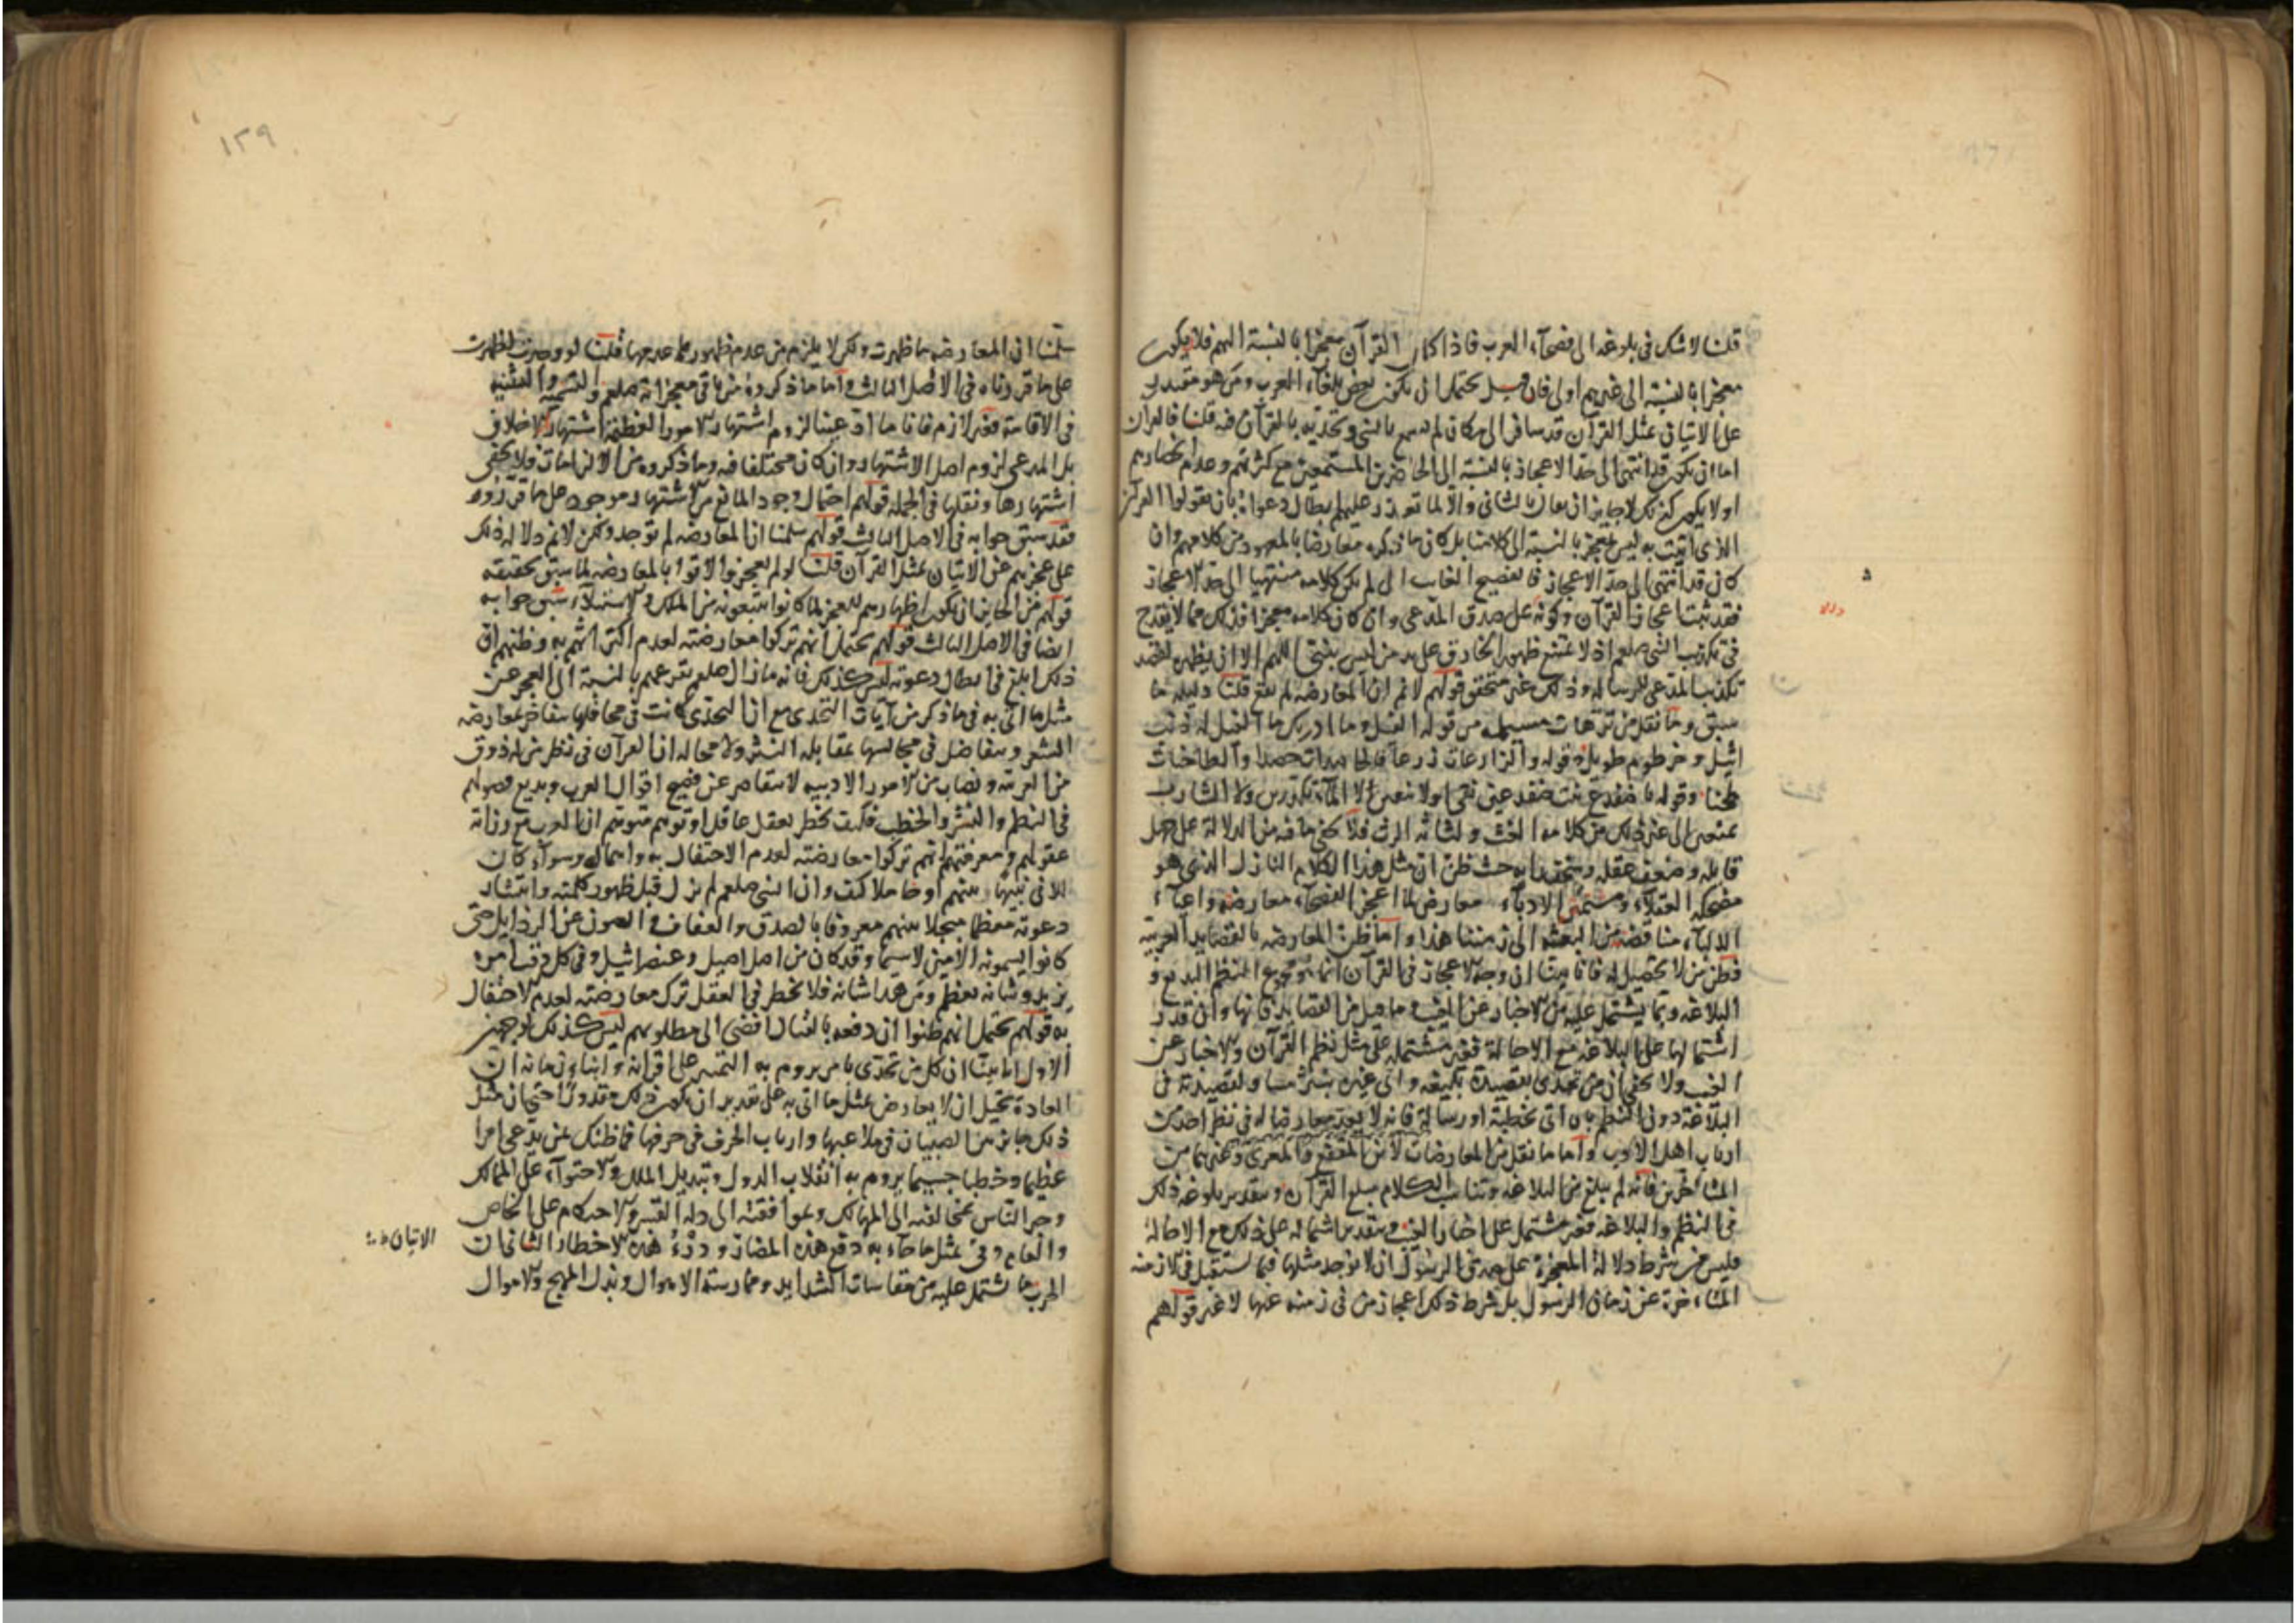 قلنا لا شك في بلوغه الى فصحآء العرب فاذا كان القرآن معجزا بالنسبة اليهم فلان يكون
معجزا بالنسبة الى غيرهم اولى فان قيل يحتمل ان يكون بعض بلغآء العرب ومن هو مقتدر
على الاتيان بمثل القرآن قد سافر الى مكان لم يسمع بالنبي وتحديه بالقرآن فيه قلنا فالقرآن
اما ان يكون قد انتهى الى حد الاعجاز بالنسبة الى الحاضرين المستمعين مع كثرتهم وعدم انحصارهم
او لا يكون كذلك لا جايز ان يقال بالثاني والا لما تعذر عليهم ابطال دعواه بان يقولوا القرآن
الذي اتيت به ليس بمعجز بالنسبة الى كلامنا بل كان ما ذكره معارضا بالمعهود من كلامهم وان
كان قد انتهى الى حد الاعجاز فالفصيح الغايب ان لم يكن كلامه منتهيا الى حد الاعجاز
فقد ثبت اعجاز القرآن وكونه على صدق المدعي وان كان كلامه معجزا فذلك مما لا يقدح
في تكذيب النبي صلعم اذ لا يمتنع ظهور الخارق على يد من ليس بنبي اللهم الا ان يظهر لقصد
تكذيب المدعي للرسالة وذلك غير متحقق قولهم لا نم ان المعارضة لم تقع قلنا دليله ما
سبق وما نقل من ترهات مسيلمه من قوله الفيل وما ادريك ما الفيل له ذنب
اثيل وخرطوم طويل وقوله والزارعات زرعا فالحاصدات حصدا والطاحنات
طحنا وقوله يا ضفدع بنت ضفدعين نقي او لا تنقين لا المآء تكدرين ولا الشارب
تمنعين الى غير ذلك من كلامه الغث ولسانه الرث فلا يخفى ما فيه من الدلالة على جهل
قايله وضعف عقله وسخف رايه حيث ظن ان مثل هذا الكلام النازل الذي هو
مضحكه العقلآء ومستهزئ الادبآء معارض لما اعجز الفصحآء معارضته واعيآء
الالبآء مناقضته من البعثه الى زمننا هذا واما ظن المعارضه بالقصايد العربية
فظن من لا تحصيل له فانا بينا ان وجه الاعجاز في القرآن انما هو مجموع النظم البديع و
البلاغه وبما يشتمل عليه من الاخبار عن الغيب وما قيل من القصايد فانها وان قدر
اشتمالها على البلاغه مع الاحالة فغير مشتمله على مثل نظم القرآن والاخبار عن
الغيب ولا يخفى ان من تحدى بقصيدة بليغه واتى غيره بنثر مساو لقصيدته في
البلاغه دون النظم بان اتى بخطبة او رسالة فانه لا يعد معارضا له في نظر احد من
ارباب اهل الادب واما ما نقل من المعارضات لابن المقفع والمعري وغيرهما من
المتأخرين فانه لم يبلغ من البلاغه وتناسب الكلام مبلغ القرآن وبتقدير بلوغه ذلك
في النظم والبلاغه فغير مشتمل على اخبار الغيب وبتقدير اشتماله على ذلك مع الاحالة
فليس من شرط دلالة المعجزة على صدق الرسول ان لا يوجد مثلها فيما يستقبل في الازمنه
المتاخرة عن زمان الرسول بل شرط ذلك اعجاز من في زمنه عنها لا غير قولهم
١٣٩
سلمنا ان المعارضه ما ظهرت ولكن لا يلزم من عدم ظهورها عدمها قلنا لو وجدت لظهرت
على ما قررناه في الاصل الثالث واما ما ذكروه من باقي معجزاته صلعم والتسميه والتثنيه
في الاقامة فغير لازم فانا ما ادعينا لزوم اشتهار الامور العظيمة اشتهارا لا خلاف
بل المدعى لزوم اصل الاشتهار وان كان مختلفا فيه وما ذكروه من الالزامات فلا يخفى
اشتهارها ونقلها في الجمله قولهم احتمال وجود المانع من الاشتهار موجود على ما قرروه
فقد سبق جوابه في الاصل الثالث قولهم سلمنا ان المعارضه لم توجد ولكن لا نم دلالة ذلك
على عجزهم عن الاتيان بمثل القرآن قلنا لو لم يعجزوا لاتوا بالمعارضه لما سبق تحقيقه
قولهم من الجايز ان يكون اظهارهم للعجز لما كانوا يتبعونه من الملك والاستيلاء سبق جوابه
ايضا في الاصل الثالث قولهم يحتمل انهم تركوا معارضته لعدم اكتراثهم به وظنهم ان
ذلك ابلغ في ابطال دعوته ليس كذلك فانه ما زال صلعم يقرعهم بالنسبة الى العجز عن
مثل ما اتى به في ما ذكر من آيات التحدي مع ان التحدي كانت في محافلها يتفاخر بمعارضه
الشعر ويتفاضل في مجالسها بمقابلة النثر ولا محاله ان القرآن في نظر من له ذوق
من العربية ونصاب من الامور الادبيه لا يتقاصر عن فصيح اقوال العرب وبديع فصولهم
في النظم والنثر والخطب فكيف يخطر بعقل عاقل او توهم متوهم ان العرب مع رزانة
عقولهم ومعرفتهم انهم تركوا معارضته لعدم الاحتفال به واهماله وسوآء كان
اللافي نبيها بينهم او خاملا كيف وان النبي صلعم لم يزل قبل ظهور كلمته وانتشار
دعوته معظما مبجلا بينهم معروفا بالصدق والعفاف والصون عن الرذايل حتى
كانوا يسمونه الامين لا سيما وقد كان من اصل اصيل وعنصر اثيل وفي كل وقت امره
يزيد وشانه يعظم ومن هذا شانه فلا يخطر في العقل ترك معارضته لعدم الاحتفال
به قولهم يحتمل انهم ظنوا ان دفعه بالقتال افضى الى مطلوبهم ليس كذلك لوجهين
الاول انا بينا ان كل من تحدى بامر يروم به التميز على اقرانه وابناء زمانه ان
العادة تحيل ان لا يعارض بمثل ما اتى به على تقدير ان يكون ذلك مقدورا حتى ان مثل
ذلك جايز من الصبيان في ملاعبها وارباب الحرف في حرفها فما ظنك بمن يدعي امرا
عظيما وخطبا جسيما يروم به انقلاب الدول وتبديل الملل والاحتوآء على الممالك
وجر الناس بمخالفته الى المهالك وبموافقته الى ذلة القسر والاحكام على الخاص
والعام وفي مثل ما جآء به دفع هذه المضار ودرء هذه الاخطار الثاني ان
الاتيان
الحرب ما يشتمل عليه من مقاسات الشدايد وممارسة الاهوال وبذل المهج والاموال